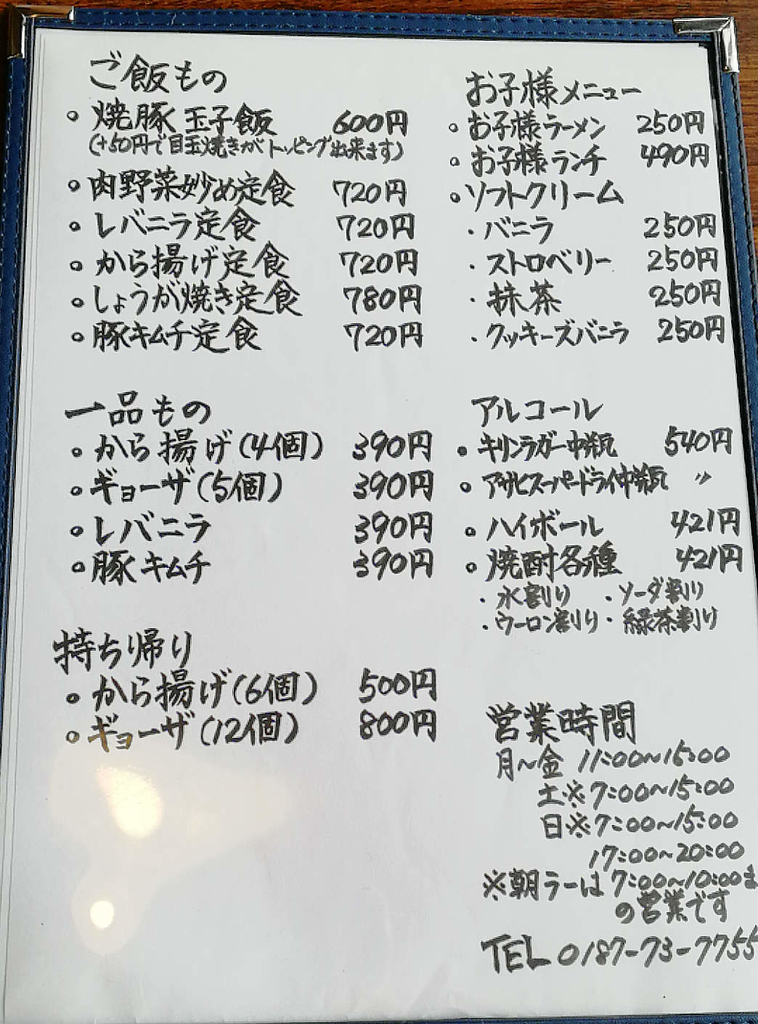 ご飯もの
。焼豚玉子飯 600円
(+50円で目玉焼きがトッピング出来ます)
。肉野菜妙め定食 720円
。レバニラ定食 720円
。から揚げ定食 720円
。しょうが焼き定食 780円
。豚キムチ定食 720円
一品もの
。から揚げ(4個) 390円
。ギョーザ(5個) 390円
。レバニラ 390円
。豚キムチ 390円
持ち帰り
。から揚げ(6個) 500円
。ギョーザ(12個) 800円
お子様メニュー
。お子様ラーメン 250円
。お子様ランチ 490円
。ソフトクリーム
・バニラ 250円
・ストロベリー 250円
・抹茶 250円
・クッキーズバニラ 250円
アルコール
。キリンラガー中瓶 540円
。アサヒスーパードライ中瓶 〃
。ハイボール 421円
。焼酎各種 421円
・水割り ・ソーダ割り
・ウーロン割り ・緑茶割り
営業時間
月〜金 11:00〜15:00
土※7:00〜15:00
日※7:00〜15:00
17:00〜20:00
※朝ラーは7:00〜10:00ま
の営業です
TEL 0187-73-7755